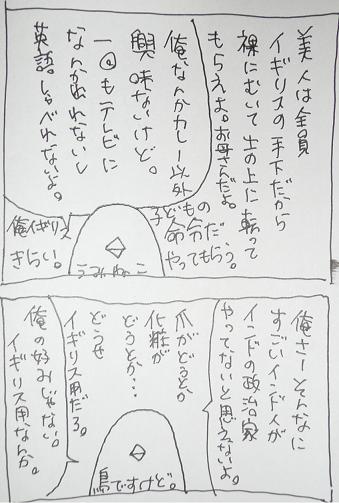 美人は全員
イギリスの手下だから
裸にむいて土の上に転って
もらえよ。お母さんだよ。
子どもの
命令だ、
やってもらう。
俺なんかカレー以外
興味ないけど。
一回もテレビに
なんか出れないし
英語しゃべれないよ。
俺イギリス
きらい。
うみねこ
俺さーそんなに
すごいインド人が
インドの政治家
やってないと思えないよ。
爪がどうとか
化粧が
どうとか…
どうせ
イギリス用だろ。
俺の好みじゃない。
イギリス用なんか。
鳥ですけど。